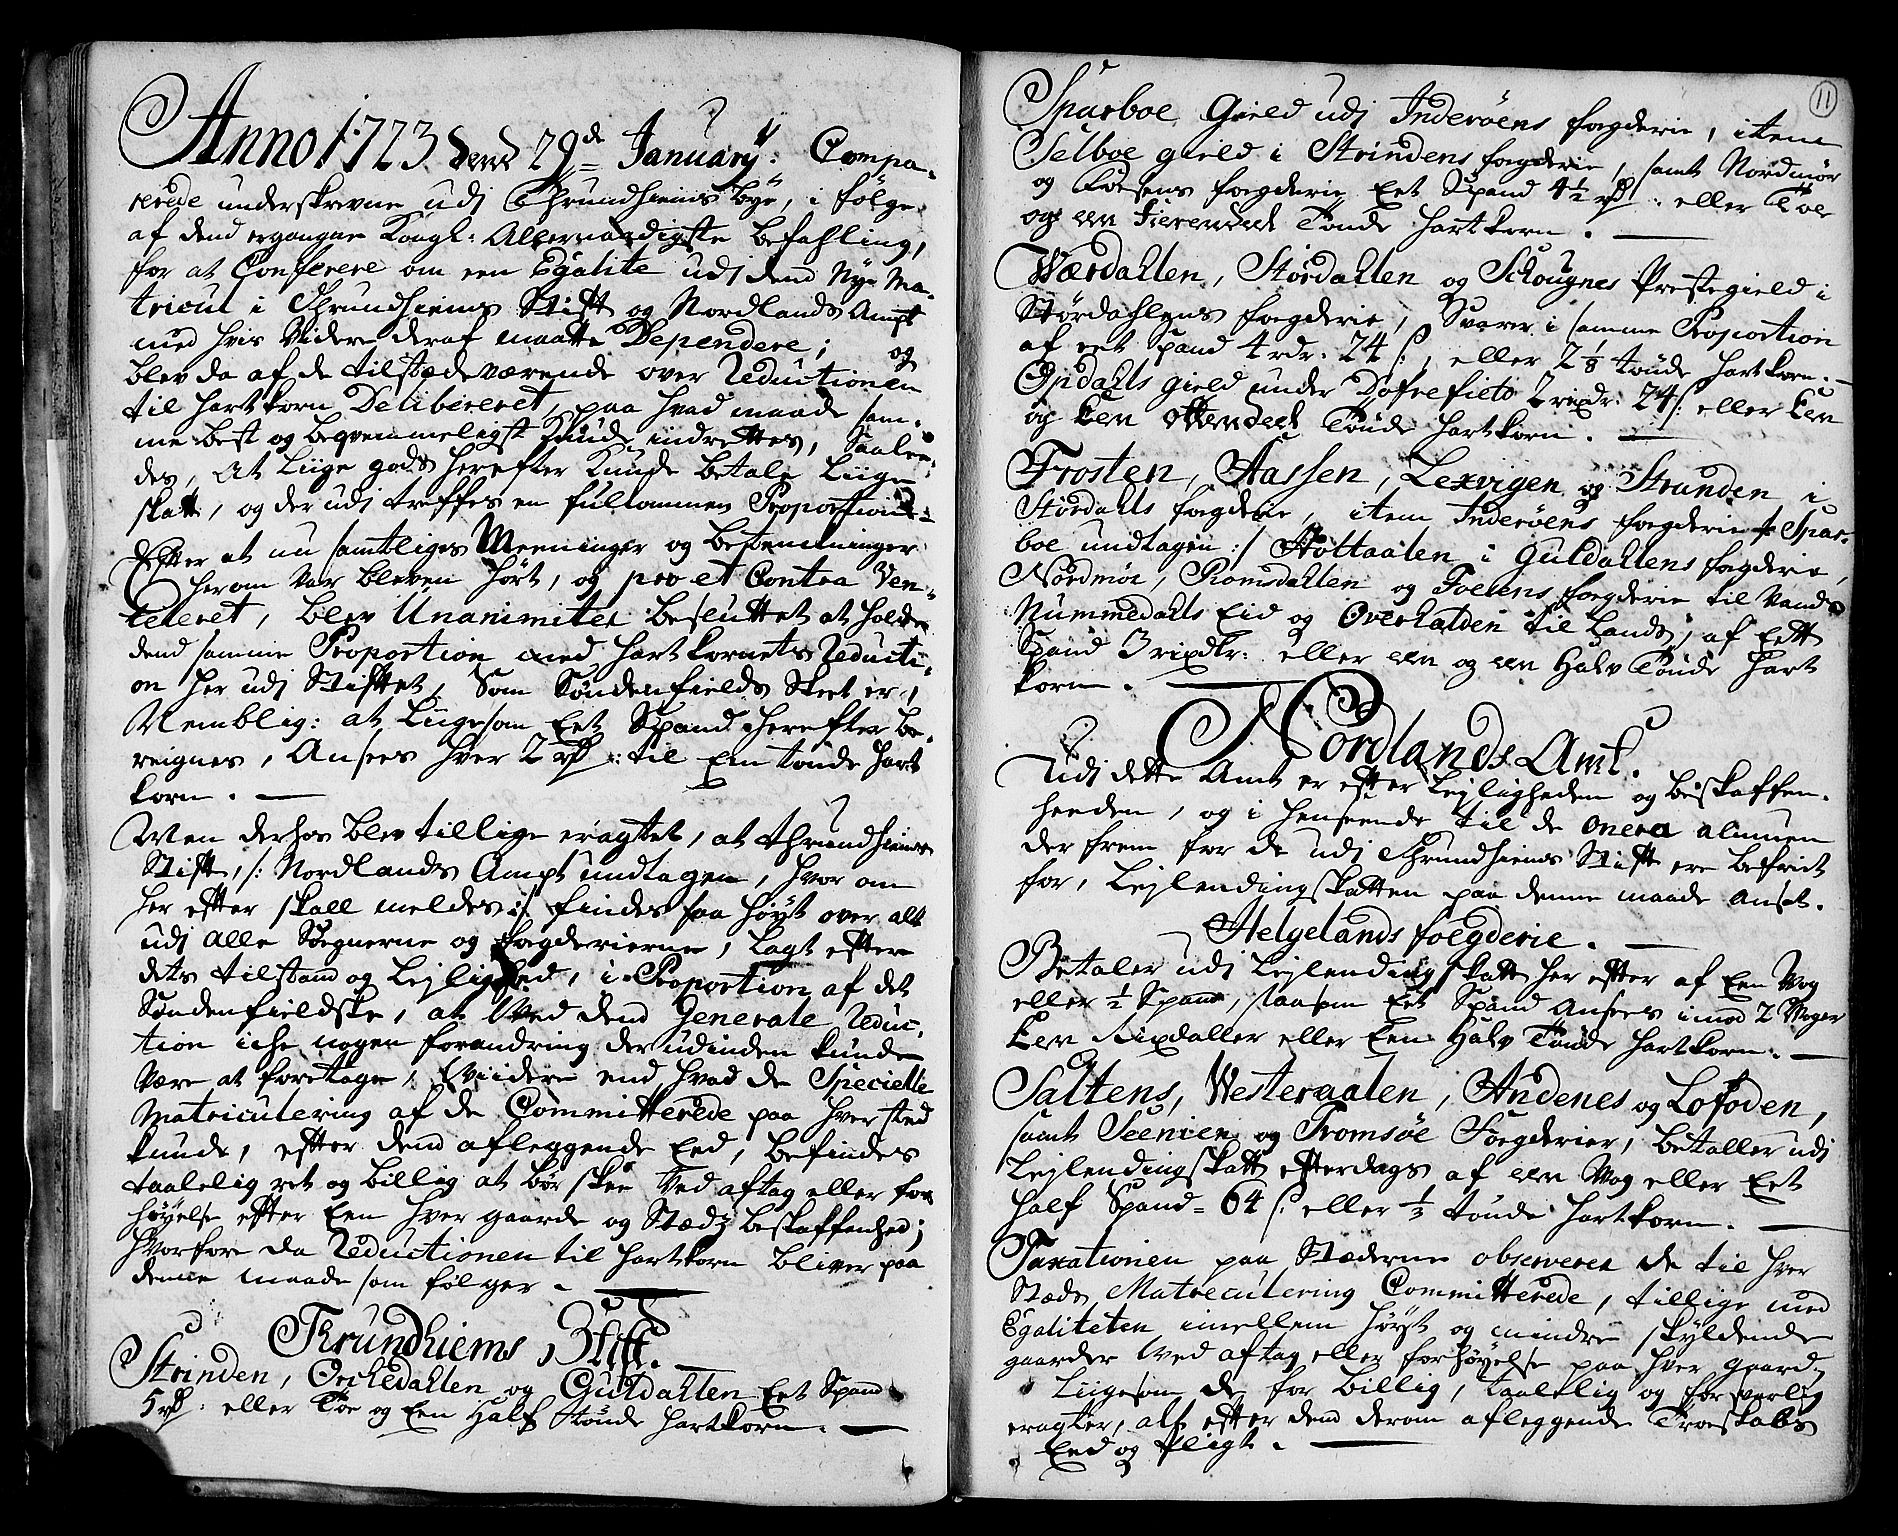 Anno 1723 dend 29de January: Compa-
rerede underskrevne udj Thrundhiems bye, i følge
af dend ergangne Kongl: Allernaadigste befahling,
for at Conferere om een Egalite udj dend Nye Ma-
tricul i Thrundhiems Stift og Nordlands Ampt
med hvis Videre deraf maatte Dependere; og
blev da af de tilstædeværende over Reductionen
til hartkorn Delibereret, paa hvad maade sam-
me best og beqvemmeligst kunde indrettes, Saale-
des, at Liige gods herefter kunde betale Liige
skatt, og der udj treffes en fulkommen Proportion
Efter at nu samtliges Meeninger og betenckninger
herom var bleven hørt, og pro et Contra Ven-
teleret, blev Unanimiter besluttet at holde
dend samme Proportion med hartkornets Reducti-
on her udj Stiftet, Som Søndenfields Skeet er,
Nemblig: at Liigesom Eet Spand herefter be-
reignes, Ansees hver 2 rd: til Een tønde hart
korn.
Men derhos blev tillige eragtet, at Thrundhiems
Stift, /: Nordlands Ampt undtagen, hvor om
her efter skall meldes :/ findes saa høyt over alt
udj alle Sognerne og fogderierne, lagt efter
dets tilstand og Leylighed, i Proportion af det
Søndenfieldske, at Ved dend Generale Reduc-
tion iche nogen forandring der udinden kunde
være at foretage, Viidere end hvad de Specielle
Matriculering af de Committerede paa hver sted
kunde, efter dend afleggende Eed, befindes
taalelig ret og billig at bør skee Ved aftag eller for
høyelse efter Een hver gaards og Stædz beskaffenhed;
hvorfore da Reductionen til hartkorn bliver paa
denne maade som følger.
Thrundhiems Stift.
Strinden, Orchedahlen og Guldahlen Eet Spand
5 rd: eller Toe og Een Half tønde hartkorn.
11
Sparboe Gield udj Inderöens fogderie, item
Selboe gield i Strindens fogderie, samt Nordmør
og Foesens fogderie, Eet Spand 4½ rd: eller Toe
og een Fierendeel Tønde hartkorn.
Værdahlen, Størdahlen og Schougnes Prestegield i
Størdahlens fogderie, Svarer i samme Proportion
af eet Spand 4 rdr: 24 s:, eller 2 1/8 tønde hartkorn.
Opdahls gield under Dofrefield 2 rixdr: 24 s: eller Een
og Een ottendeel Tønde hartkorn.
Frosten, Aassen, Lexvigen og Stranden i
Størdahls fogderie, item Inderöens fogderie /: Spar-
boe undtagen :/ Holtaalen i Guldahlens fogderie,
Nordmør, Romsdahlen og Foesens fogderie til Vands
Nummedahls Eid og Overhalden til Lands, af Eett
Spand 3 rixdlr: eller een og een Halv Tønde Hart
korn.
Nordlands Amt.
Udj dette Amt er efter Lejligheden og beskaffen-
heeden, og i henseende til de onera almuen
der frem for de udj Thrundhiems Stift ere befriet
for, Lejlendingskatten paa denne maade ansat.
Helgelands foegderie.
Betaler udj Lejlendingskatt her efter af Een Vog
eller ½ Spand, saasom Eet Spand Ansees imod 2 Voger
Een Rixdaller eller Een Halv Tønde Hartkorn.
Saltens, Westeraalen, Andenes og Lofoden,
samt Seenien og Tromsøe Foegderier, betaller udj
Lejlendingskatt efterdags af een Vog eller Eet
half Spand = 64 s: eller ⅓ tønde hartkorn.
Taxationen paa Stæderne observerer de til hver
Stæds Matreculering Committerede, tillige med
Egaliteten imellem høyt og mindre skyldende
gaarder Ved aftag eller forhøyelse paa hver gaard,
Liigesom de for billig, taalelig og forsvarlig
eragter, alt efter dend derom afleggende Troeskabs
Eed og Pligt.